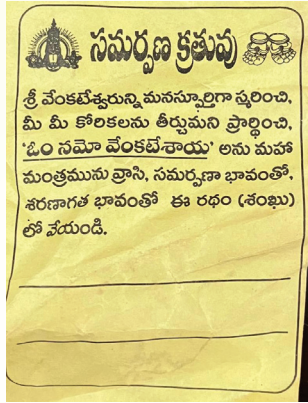 సమర్పణ క్రతువు
శ్రీ వేంకటేశ్వరున్ని మనస్ఫూర్తిగా స్మరించి,
మీ మీ కోరికలను తీర్చుమని ప్రార్థించి,
'ఓం నమో వేంకటేశాయ' అను మహా
మంత్రమును వ్రాసి, సమర్పణా భావంతో,
శరణాగత భావంతో ఈ రథం (శంఖు)
లో వేయండి.